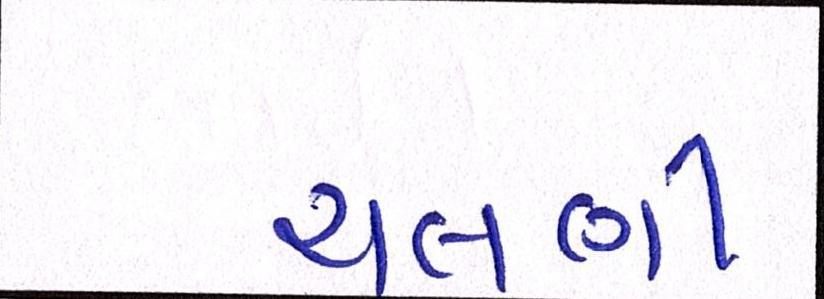 ચલણી